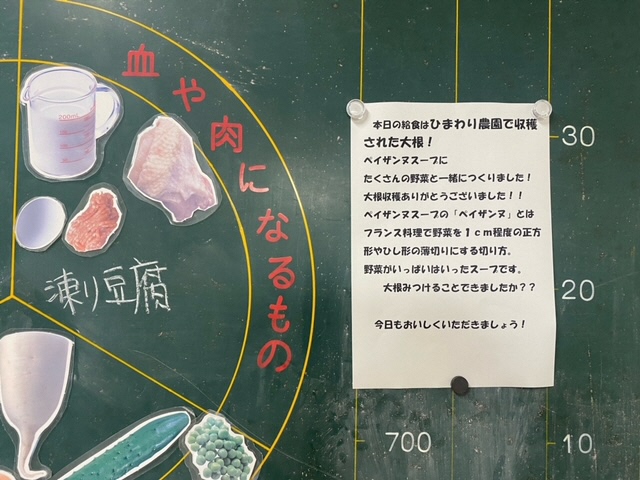 血や肉になるもの
200mL
凍り豆腐
本日の給食はひまわり農園で収穫
された大根！
ペイザンヌスープに
たくさんの野菜と一緒につくりました！
大根収穫ありがとうございました！！
ペイザンヌスープの「ペイザンヌ」とは
フランス料理で野菜を１ｃｍ程度の正方
形やひし形の薄切りにする切り方。
野菜がいっぱいはいったスープです。
大根みつけることできましたか？？
今日もおいしくいただきましょう！
30
20
700
10